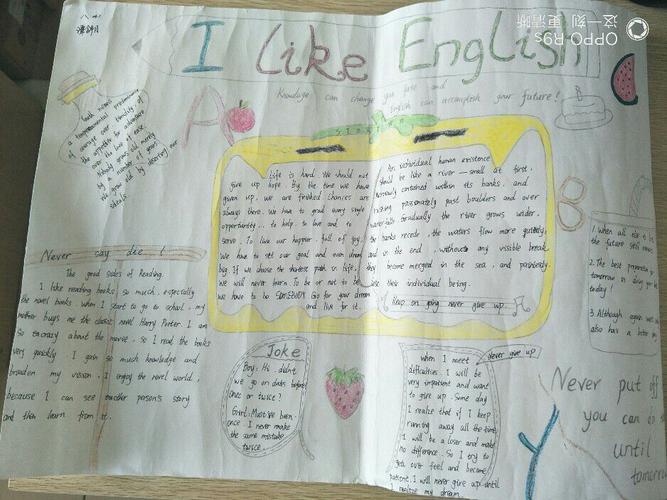 八.4
I Like English
Knowledge can change your fate and
English can accomplish your future!
OPPO R9s
这一刻 更清晰
A
B
Y
Youth means
a temperamental predominance
of courage over timidity of
the appetite for adventure
over the love of ease
Nobody grows old merely
by a number of years
We grow old by deserting our
ideals
Life is hard. We should not
give up hope. By the time we have
given up, we are finished chances are
always there. We have to grad every single
opportunity to help, to love and to
serve. To live our happier, full of joy.
We have to set our goal and even dream
big. If we choose the shortest path in life,
we will never learn. To be or not to be
we have to be SOMEBODY. Go for your dream
and live for it.
An individual human existence
should be like a river — small at first,
narrowly contained within its banks, and
rushing passionately past boulders and over
waterfalls. Gradually the river grows wider,
the banks recede, the waters flow more quietly,
and in the end, without any visible break,
they become merged in the sea, and painlessly
lose their individual being.
Keep on going never give up.
Never say die !
The good sides of Reading.
I like reading books so much, especially
the novel books. When I start to go to school, my
mother buys me the classic novel Harry Porter. I am
so crazy about the So I read the books
very quickly. I gain so much knowledge and
broaden my vision. I enjoy the novel world,
because I can see another person's story
and then learn from it.
Joke
Boy: Hi. didn't
we go on dates before
Once or twice?
Girl: Must've been
once. I never make
the same mistake
twice.
Never give up
When I meet
difficulties. I will be
very impatient and want
to give up. Some day
I realize that if I keep
running away all the time
I will be a loser and make
no difference. So I try to
get over feel and become
patient. I will never give up until
I realize my dream
1. When all else is
the future still
2. The best preparation
tomorrow is doing your
today!
3. Although again
also has a better
Never put off
you can
until
tomorrow